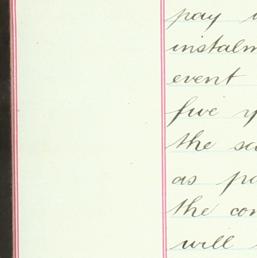 pay
instalm
event
five y
the sa
as pa
the con
will